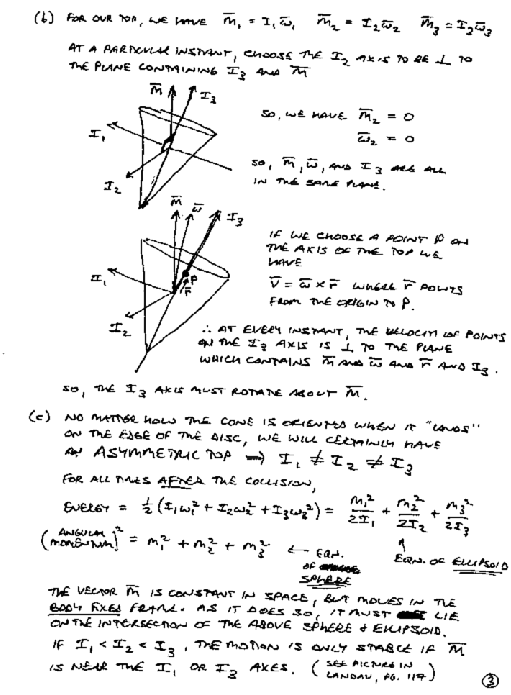 (b) FOR OUR TOP, WE HAVE M̄₁ = I₁ω̄₁ M̄₂ = I₂ω̄₂ M̄₃ = I₃ω̄₃
AT A PARTICULAR INSTANT, CHOOSE THE I₂ AXIS TO BE ⊥ TO
THE PLANE CONTAINING I₃ AND M̄
M̄ I₃
I₁
I₂
SO, WE HAVE M̄₂ = 0
ω̄₂ = 0
SO, M̄, ω̄, AND I₃ ARE ALL
IN THE SAME PLANE.
M̄ ω̄ I₃
P
r̄
I₁
I₂
IF WE CHOOSE A POINT P ON
THE AXIS OF THE TOP WE
HAVE
V̄ = ω̄ × r̄ WHERE r̄ POINTS
FROM THE ORIGIN TO P.
∴ AT EVERY INSTANT, THE VELOCITY OF POINTS
ON THE I₃ AXIS IS ⊥ TO THE PLANE
WHICH CONTAINS M̄ AND ω̄ AND r̄ AND I₃.
SO, THE I₃ AXIS MUST ROTATE ABOUT M̄.
(c) NO MATTER HOW THE CONE IS ORIENTED WHEN IT "LANDS"
ON THE EDGE OF THE DISC, WE WILL CERTAINLY HAVE
AN ASYMMETRIC TOP ⟹ I₁ ≠ I₂ ≠ I₃
FOR ALL TIMES AFTER THE COLLISION,
ENERGY = ½(I₁ω₁² + I₂ω₂² + I₃ω₃²) = M₁²/2I₁ + M₂²/2I₂ + M₃²/2I₃
(ANGULAR MOMENTUM)² = M₁² + M₂² + M₃² ← EQN. OF SPHERE
↑ EQN. OF ELLIPSOID
THE VECTOR M̄ IS CONSTANT IN SPACE, BUT MOVES IN THE
BODY FIXED FRAME. AS IT DOES SO, IT MUST LIE
ON THE INTERSECTION OF THE ABOVE SPHERE & ELLIPSOID.
IF I₁ < I₂ < I₃, THE MOTION IS ONLY STABLE IF M̄
IS NEAR THE I₁ OR I₃ AXES. (SEE PICTURE IN
LANDAU, PG. 117)
③